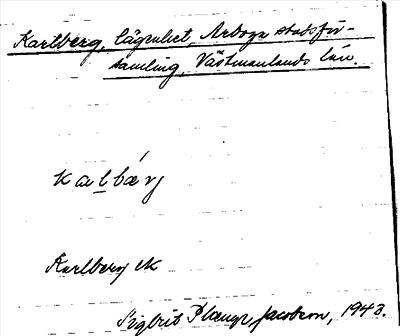 Karlberg, lägenhet, Arboga stadsför-
samling, Västmanlands län.
kalbárj
Karlberg ek
Sigbrit Plænge Jacobson, 1943.